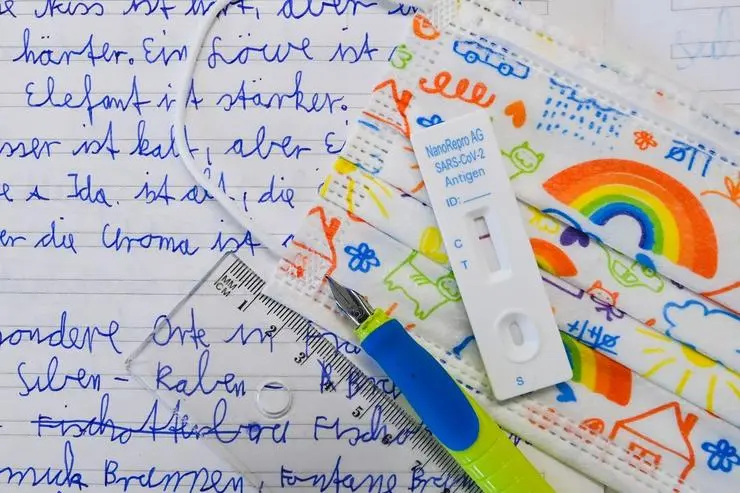 ist hart, aber
härter. Ein Löwe ist
Elefant ist stärker.
ist kalt, aber
Ida ist alt, die
er die Uroma ist
sondere Orte in
Silben - Raben
Fischotterbau Fischo
Brunnen, Fontane
NanoRepro AG
SARS-CoV-2
Antigen
ID:
C
T
S
MM
CM
1
2
3
5
6